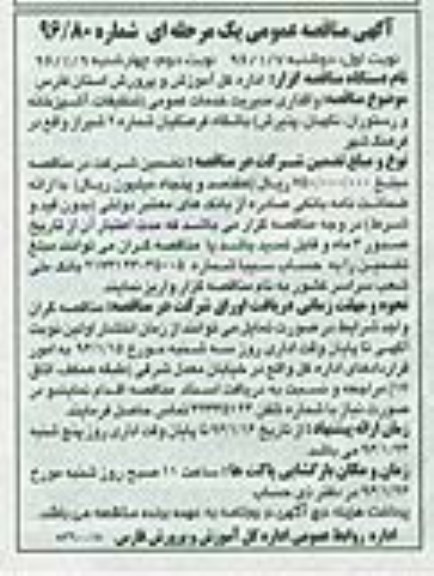 آگهی مناقصه عمومی یک مرحله ای شماره ۹۶/۸۰
نوبت اول: دوشنبه نوبت دوم: چهارشنبه
نام دستگاه مناقصه گزار: اداره کل آموزش و پرورش استان فارس
موضوع مناقصه: واگذاری مدیریت خدمات عمومی (تنظیفات، آشپزخانه
و رستوران، نگهبان، پذیرش) باشگاه فرهنگیان شماره ۲ شیراز واقع در
فرهنگ شهر
نوع و مبلغ تضمین شرکت در مناقصه: تضمین شرکت در مناقصه
مبلغ ریال (هفتصد و پنجاه میلیون ریال) با ارائه
ضمانت نامه بانکی صادره از بانک های معتبر دولتی (بدون قید و
شرط) در وجه مناقصه گزار می باشد که مدت اعتبار آن از تاریخ
صدور ۳ ماه و قابل تمدید باشد یا مناقصه گران می توانند مبلغ
تضمین را به حساب سیبا شماره بانک ملی
شعب سراسر کشور به نام مناقصه گزار واریز نمایند.
نحوه و مهلت زمانی دریافت اوراق شرکت در مناقصه: مناقصه گران
واجد شرایط در صورت تمایل می توانند از زمان انتشار اولین نوبت
آگهی تا پایان وقت اداری روز سه شنبه مورخ به امور
قراردادهای اداره کل واقع در خیابان معدل شرقی (طبقه همکف، اتاق
مراجعه و نسبت به دریافت اسناد مناقصه اقدام نمایند و در
صورت نیاز با شماره تلفن تماس حاصل فرمایند.
زمان ارائه پیشنهاد: از تاریخ تا پایان وقت اداری روز پنج شنبه
می باشد.
زمان و مکان بازگشایی پاکت ها: ساعت ۱۱ صبح روز شنبه مورخ
در دفتر ذی حساب
پرداخت هزینه درج آگهی در روزنامه به عهده برنده مناقصه می باشد.
اداره روابط عمومی اداره کل آموزش و پرورش فارس